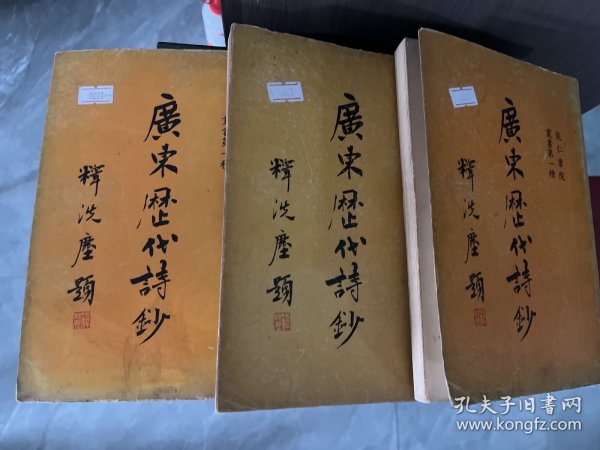 廣東歷代詩鈔
釋洗塵題
廣東歷代詩鈔
釋洗塵題
能仁書院
叢書第一種
廣東歷代詩鈔
釋洗塵題
孔夫子旧书网
www.kongfz.com